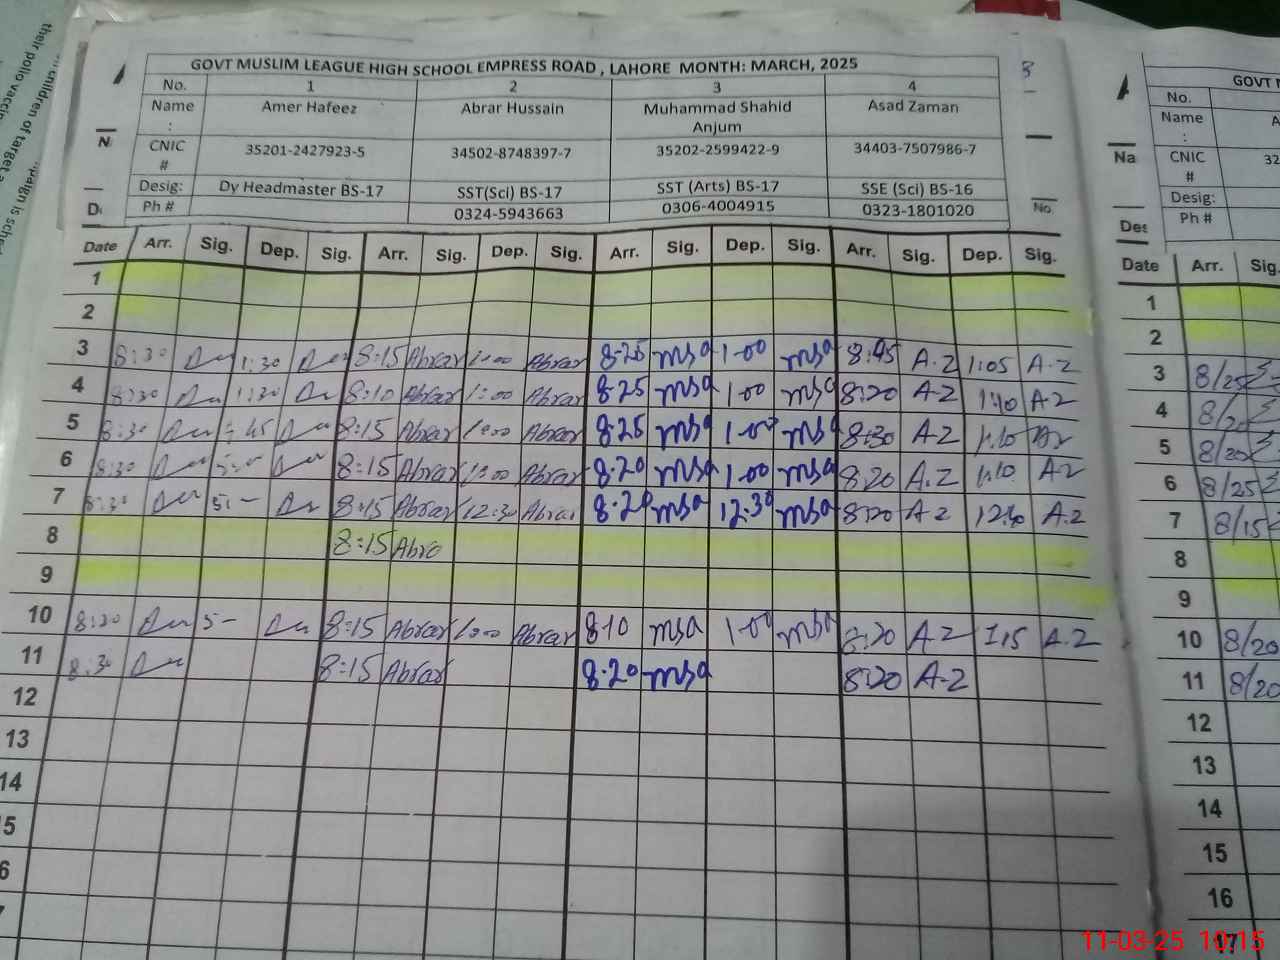 their polio vaccin
GOVT MUSLIM LEAGUE HIGH SCHOOL EMPRESS ROAD , LAHORE MONTH: MARCH, 2025
No. 1 2 3 4
Name : Amer Hafeez Abrar Hussain Muhammad Shahid Anjum Asad Zaman
CNIC # 35201-2427923-5 34502-8748397-7 35202-2599422-9 34403-7507986-7
Desig: Dy Headmaster BS-17 SST(Sci) BS-17 SST (Arts) BS-17 SSE (Sci) BS-16
Ph # 0324-5943663 0306-4004915 0323-1801020
Date Arr. Sig. Dep. Sig. Arr. Sig. Dep. Sig. Arr. Sig. Dep. Sig. Arr. Sig. Dep. Sig.
1
2
3 8:30 1:30 8:15 Abrar 1:00 Abrar 8.25 msa 1.00 msa 8:45 A.Z 1:05 A.Z
4 8:30 1:30 8:10 Abrar 1:00 Abrar 8.25 msa 1.00 msa 8:20 A.Z 1:10 A.Z
5 8:30 8:15 Abrar 1:00 Abrar 8.25 msa 1.00 msa 8:30 A.Z 1:10
6 8:30 8:15 Abrar 1:00 Abrar 8.20 msa 1.00 msa 8:20 A.Z 1:10 A.Z
7 8:30 5:- 8:15 Abrar 12:30 Abrar 8.20 msa 12.30 msa 8:20 A.Z A.Z
8 8:15 Abra
9
10 8:20 5- 8:15 Abrar 1:00 Abrar 8.10 msa 1.00 msa 8:20 A.Z 1:15 A.Z
11 8:30 8:15 Abrar 8.20 msa 8:20 A.Z
12
13
14
No
GOVT
No.
Name :
CNIC # 32
Desig:
Ph #
Na
Date Arr. Sig.
1
2
3 8/25
4
5 8/20
6 8/25
7 8/15
8
9
10 8/20
11 8/20
12
13
14
15
16
17
11-03-25 10:15